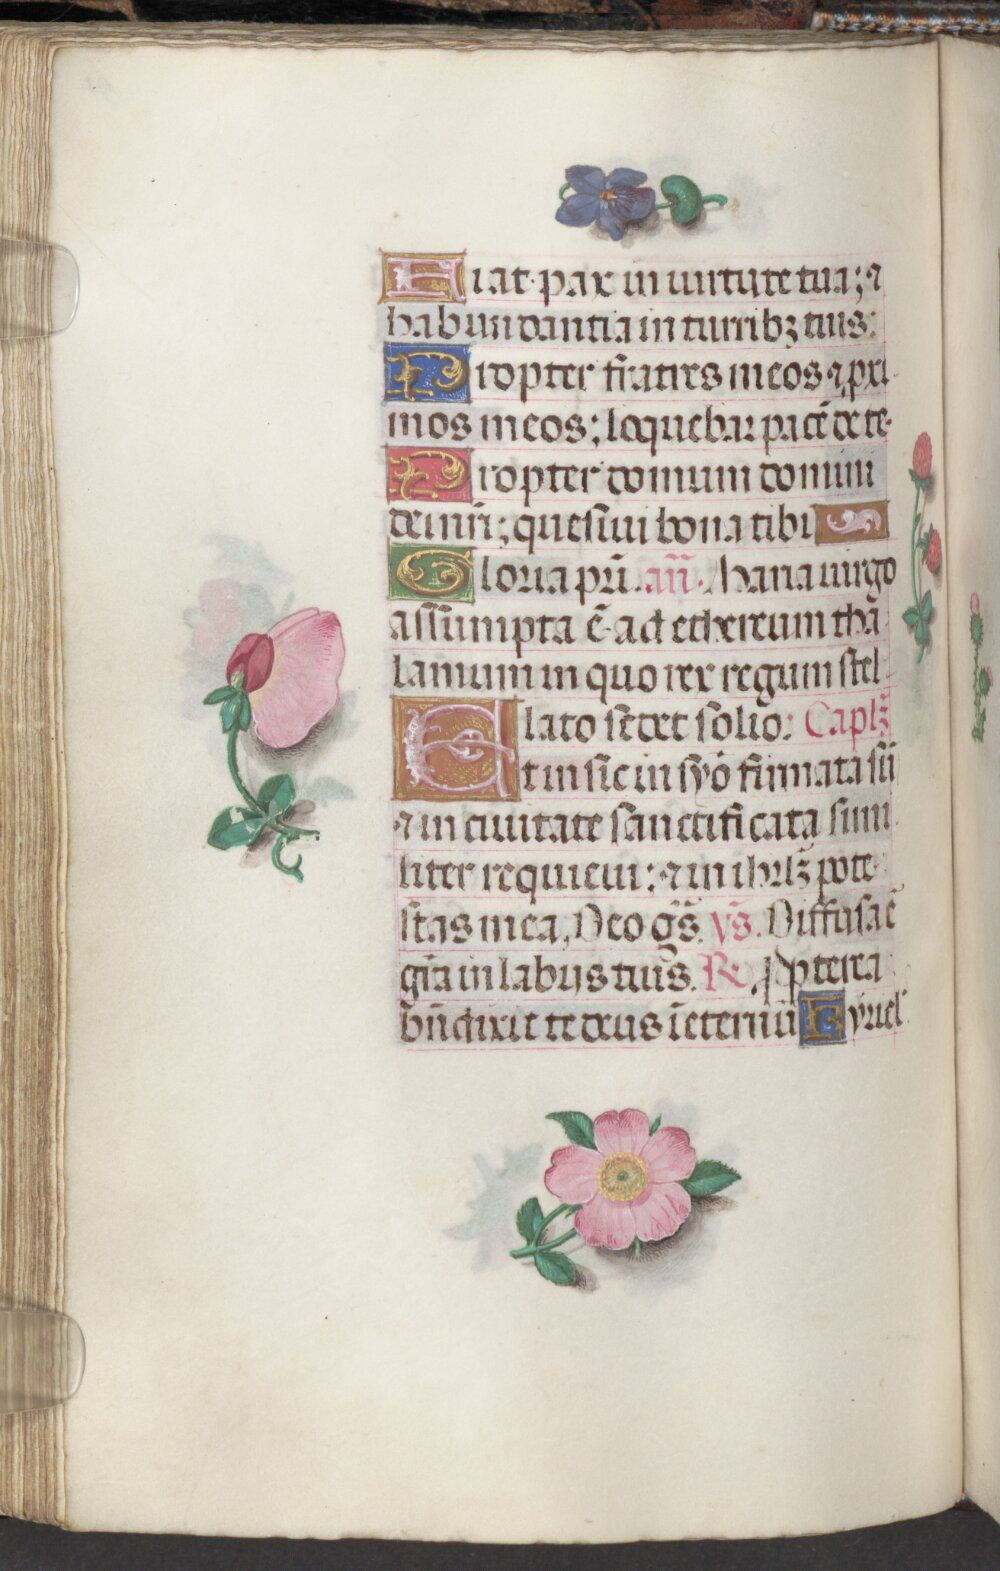 Fiat pax in uirtute tua; ⁊
habundantia in turribꝫ tuis:
Propter fratres meos ⁊ pxi
mos meos; loquebar pacē de te.
Propter domum domini
dei nr̄i; quesiui bona tibi
Gloria pr̄i. an̄. Maria uirgo
assumpta ē ad ethereum tha
lamum in quo rex regum stel
lato sedet solio: Caplꝫ
Et in sic in syō firmata sū
⁊ in ciuitate sanctificata simi
liter requieui; ⁊ in ihrlꝫ pote
stas mea, Deo gr̄s. vs̄. Diffusa ē
gr̄a in labijs tuis. R̄ ꝓpterea
bn̄dixit te deus ī eternū Kyriel